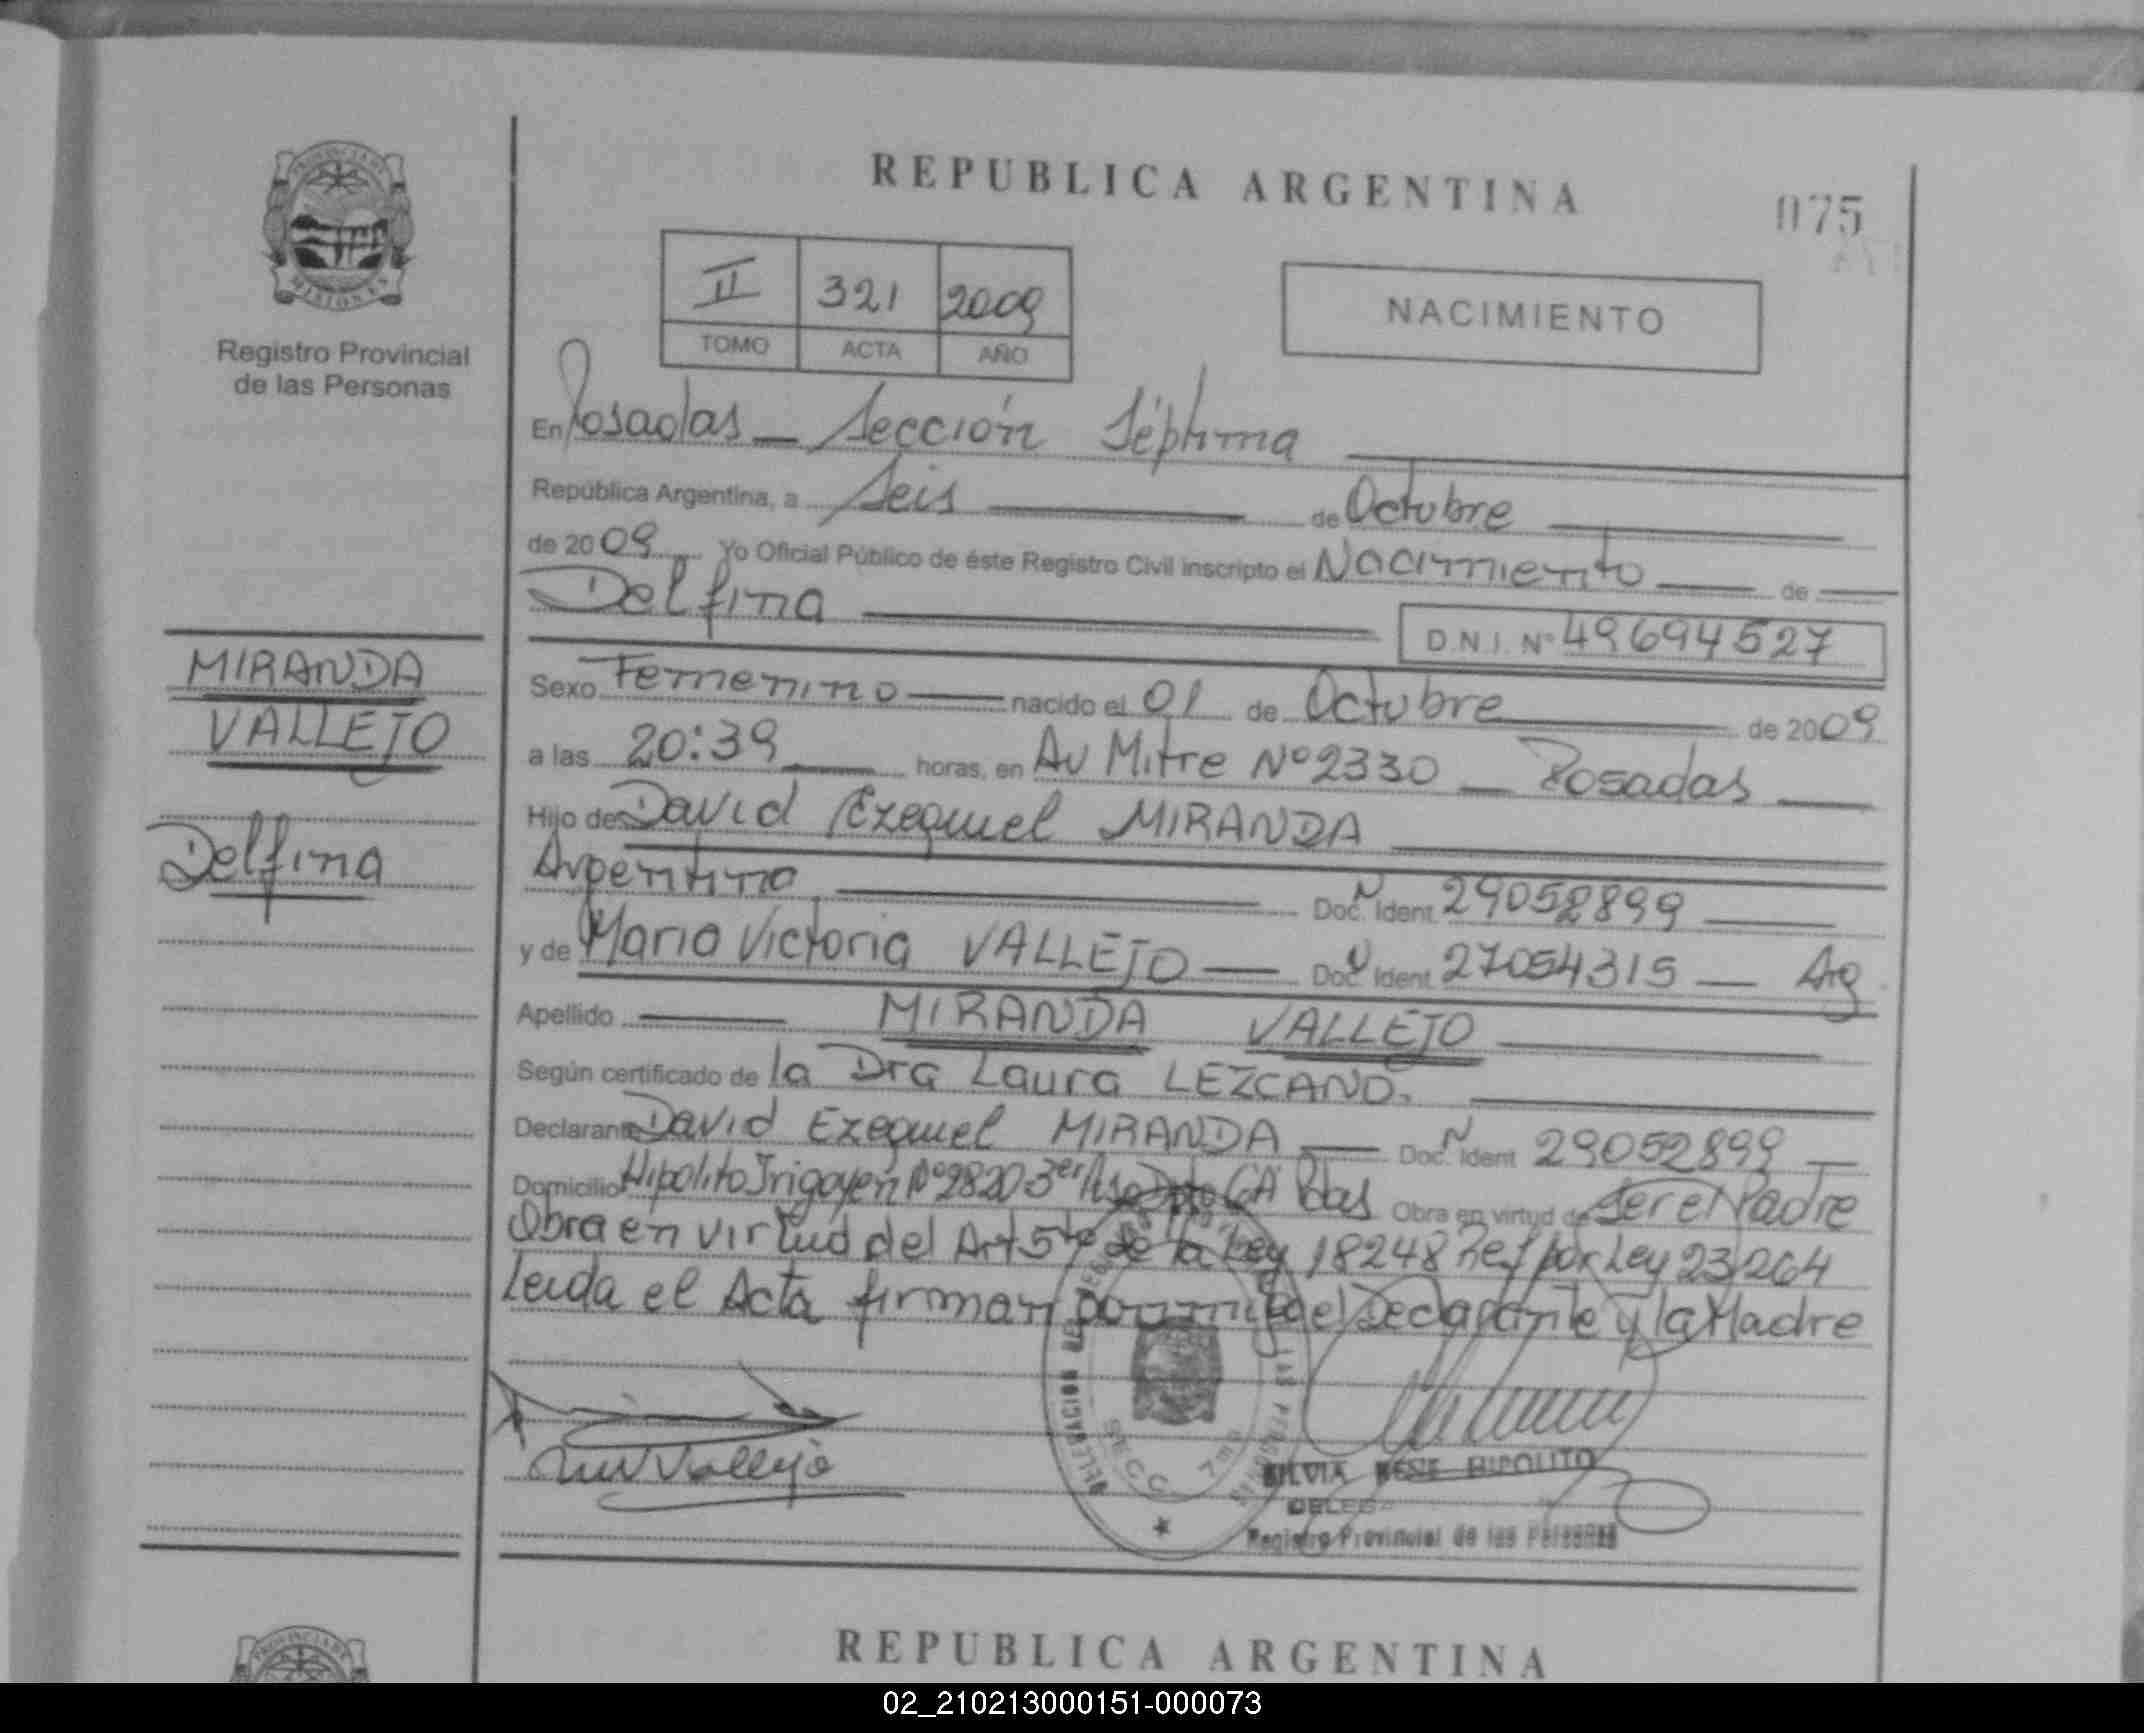 REPUBLICA ARGENTINA
075
PROVINCIA DE
MISIONES
Registro Provincial
de las Personas
II 321 2009
TOMO ACTA AÑO
NACIMIENTO
En Posadas — Sección Séptima
República Argentina, a Seis de Octubre
de 2009 Yo Oficial Público de éste Registro Civil inscripto el Nacimiento de
Delfina
D.N.I. Nº 49694527
MIRANDA
VALLEJO
Delfina
Sexo Femenino nacido el 01 de Octubre de 2009
a las 20:39 horas, en Av Mitre Nº 2330 — Posadas
Hijo de David Ezequiel MIRANDA
Argentino Doc. Ident. 29052899
y de Maria Victoria VALLEJO — Doc. Ident. 27054315 — Arg
Apellido MIRANDA VALLEJO
Según certificado de la Dra Laura LEZCANO.
Declarante David Ezequiel MIRANDA — Doc. Ident. 29052899
Domicilio Hipolito Irigoyen Nº 2820 3er Obra en virtud de ser el Padre
Obra en virtud del Art 5to de la Ley 18248 Ref por Ley 23264
Leida el Acta firman el Declarante y la Madre
Vallejo
DELEGACION
SECC. 7ma
SILVIA HIPOLITO
Registro Provincial de las Personas
REPUBLICA ARGENTINA
02_210213000151-000073